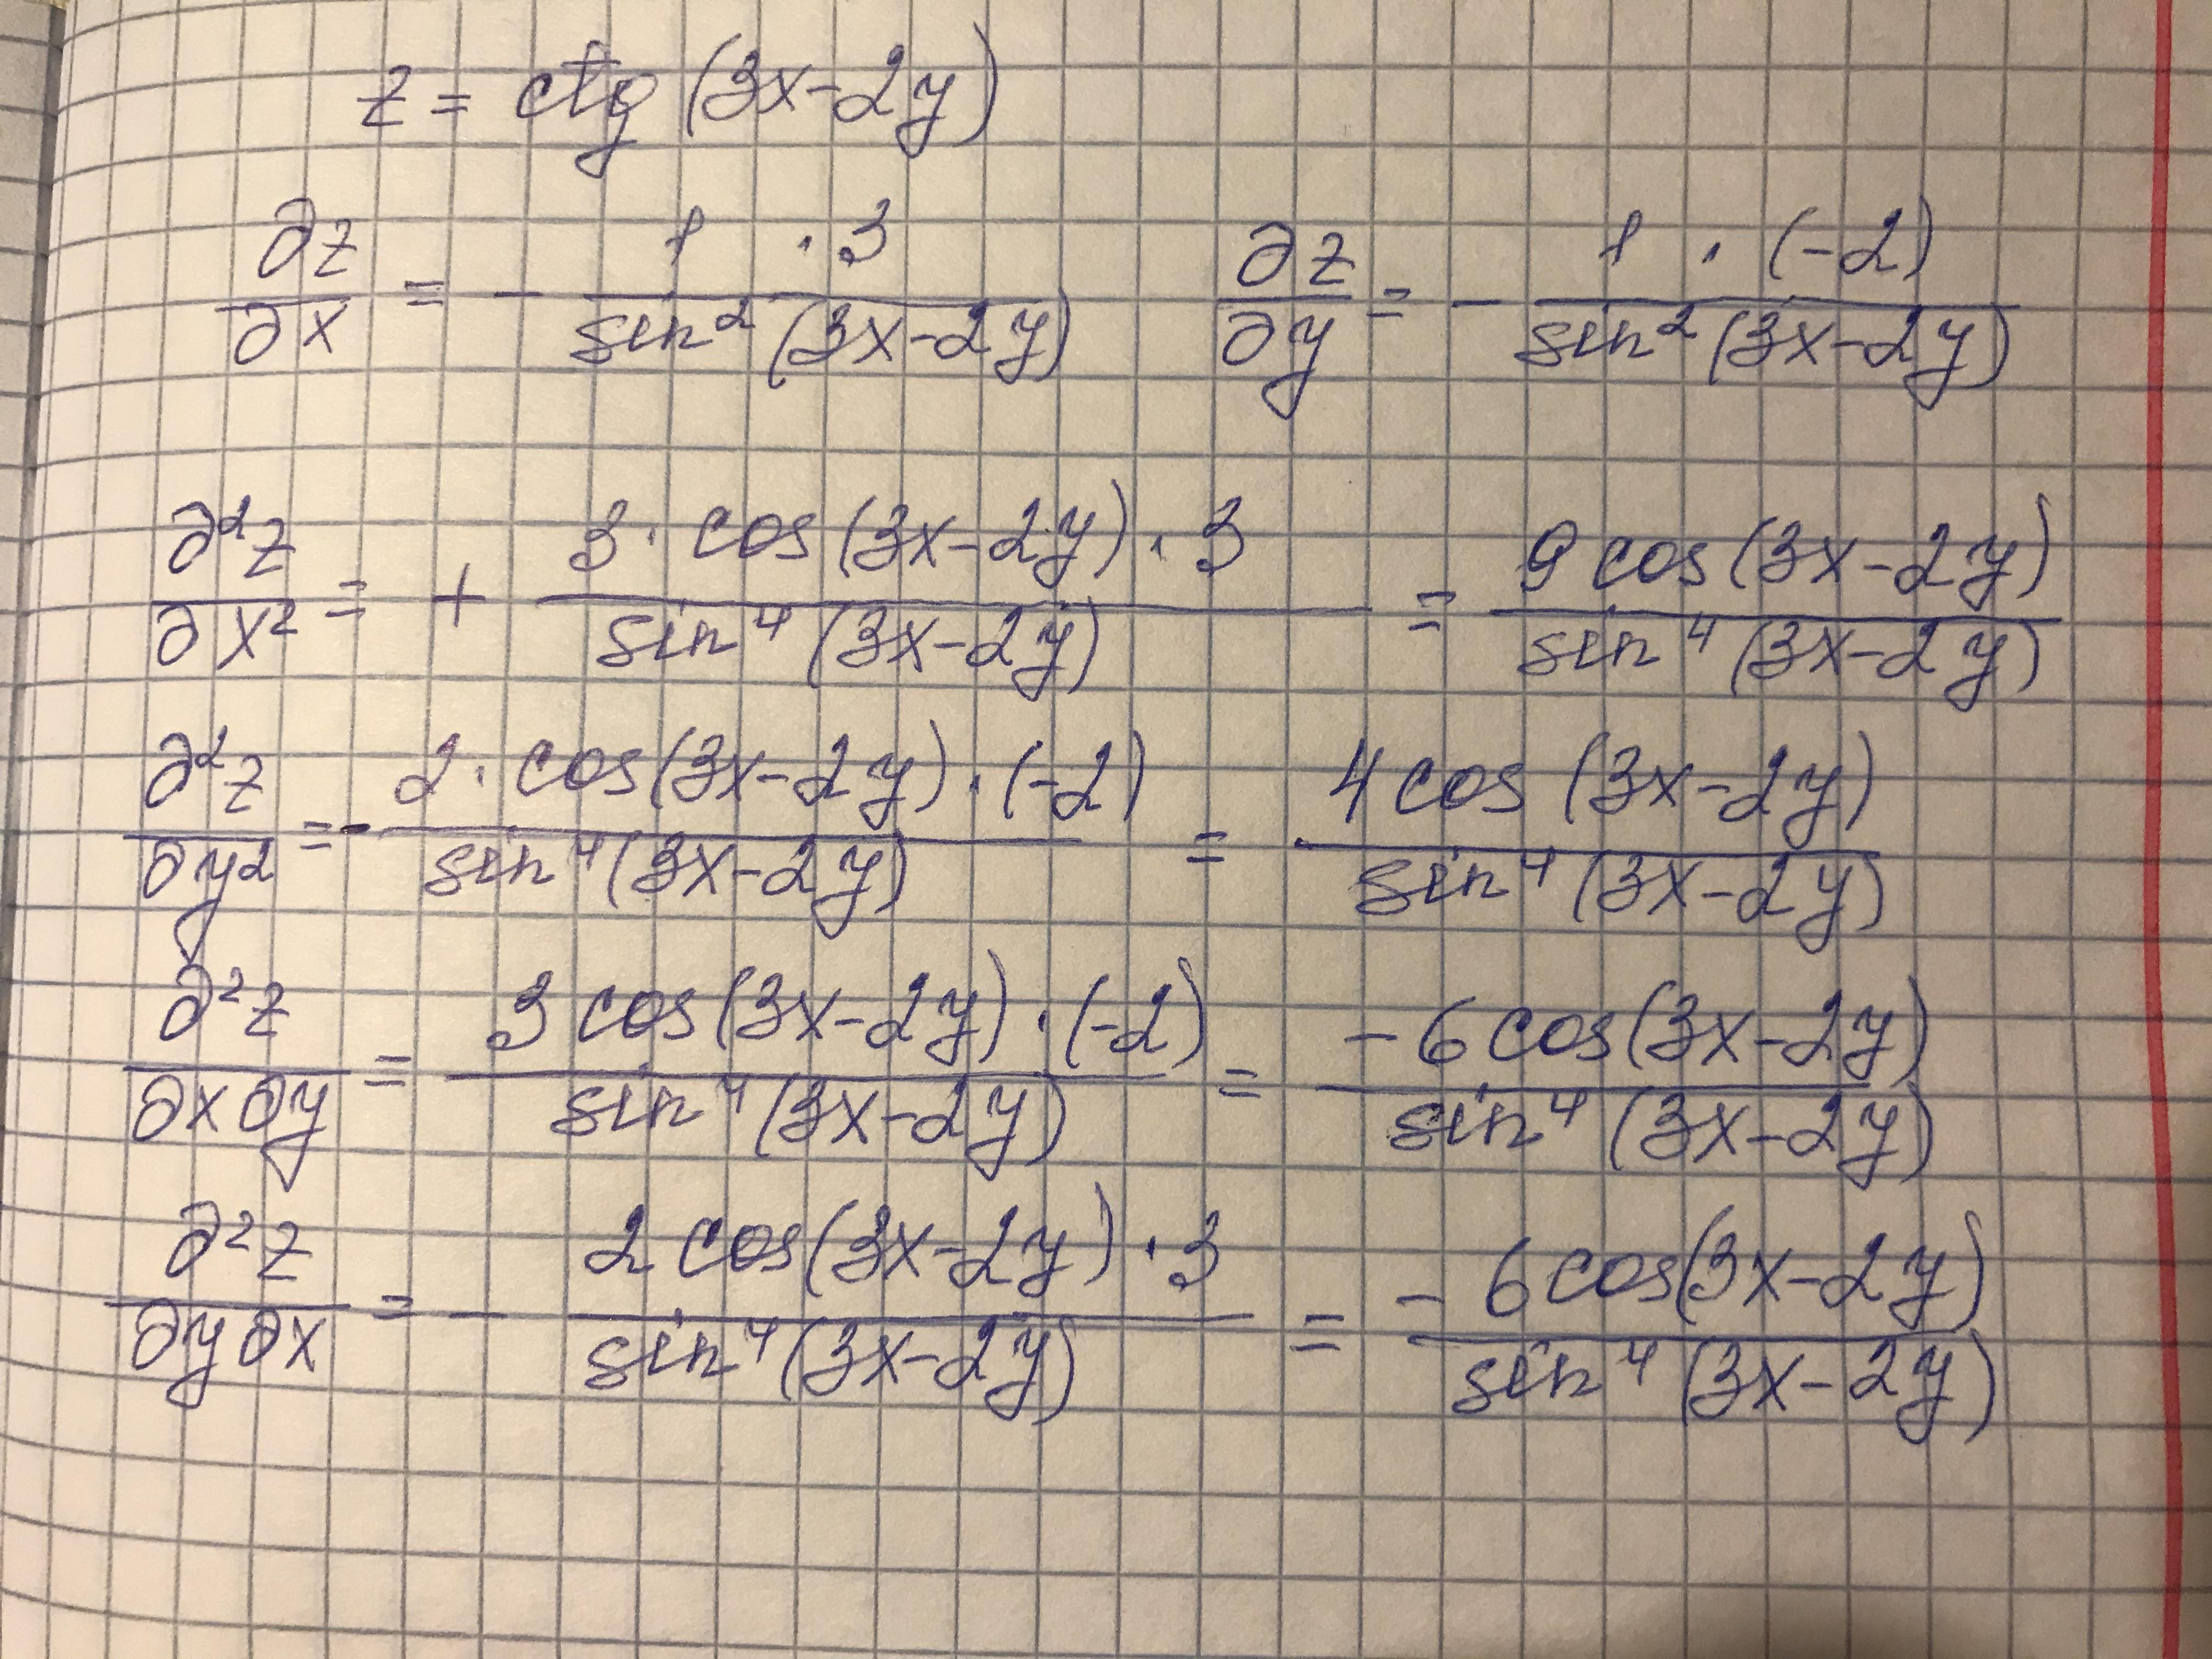 z = ctg (3x-2y)
∂z/∂x = - (1 · 3)/(sin²(3x-2y))   ∂z/∂y = - (1 · (-2))/(sin²(3x-2y))
∂²z/∂x² = + (3 · cos(3x-2y) · 3)/(sin⁴(3x-2y)) = (9 cos(3x-2y))/(sin⁴(3x-2y))
∂²z/∂y² = - (2 · cos(3x-2y) · (-2))/(sin⁴(3x-2y)) = (4 cos(3x-2y))/(sin⁴(3x-2y))
∂²z/∂x∂y = (3 cos(3x-2y) · (-2))/(sin⁴(3x-2y)) = (-6 cos(3x-2y))/(sin⁴(3x-2y))
∂²z/∂y∂x = - (2 cos(3x-2y) · 3)/(sin⁴(3x-2y)) = (-6 cos(3x-2y))/(sin⁴(3x-2y))